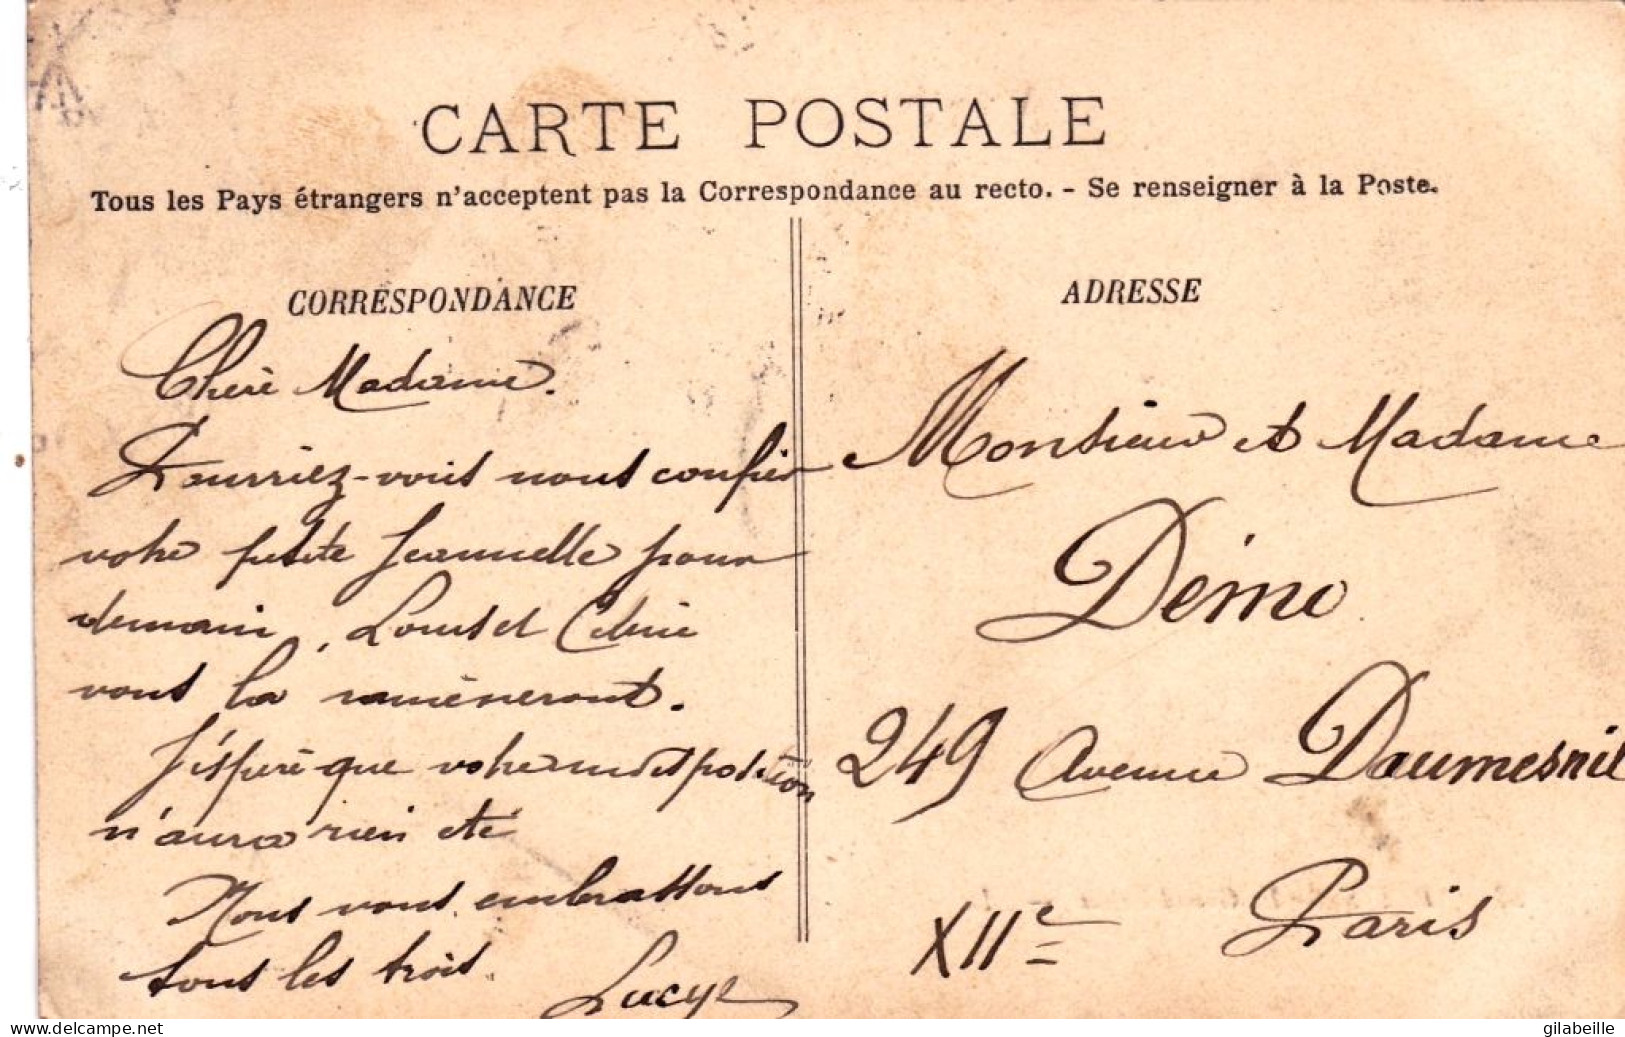 CARTE POSTALE
Tous les Pays étrangers n'acceptent pas la Correspondance au recto. - Se renseigner à la Poste.
CORRESPONDANCE
Chère Madame.
Pourriez-vous nous confier
votre petite Jeannette pour
demain, Louis et Céline
vous la ramèneront.
J'espère que votre indisposition
n'aura rien été
Nous vous embrassons
tous les trois.
Lucye
ADRESSE
Monsieur et Madame
Démo
249 Avenue Daumesnil
Paris
XIIe
delcampe.net
gilabeille